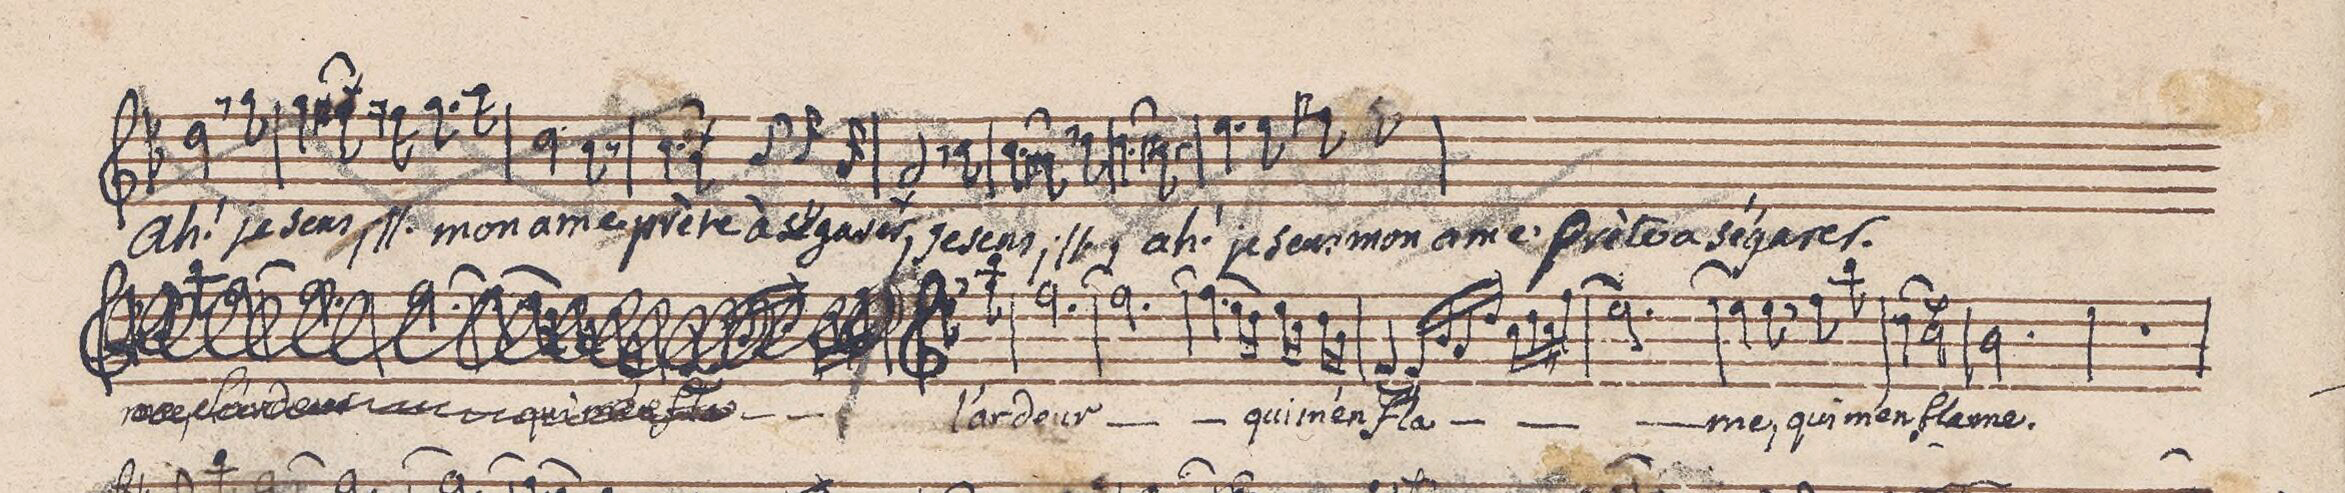 Ah! je sens, //. mon ame prète à s'égarer, je sens, //. , ah! je sens mon ame prète a ségarer.
l'ardeur — — qui m'enfla — — — me, qui m'enflame.